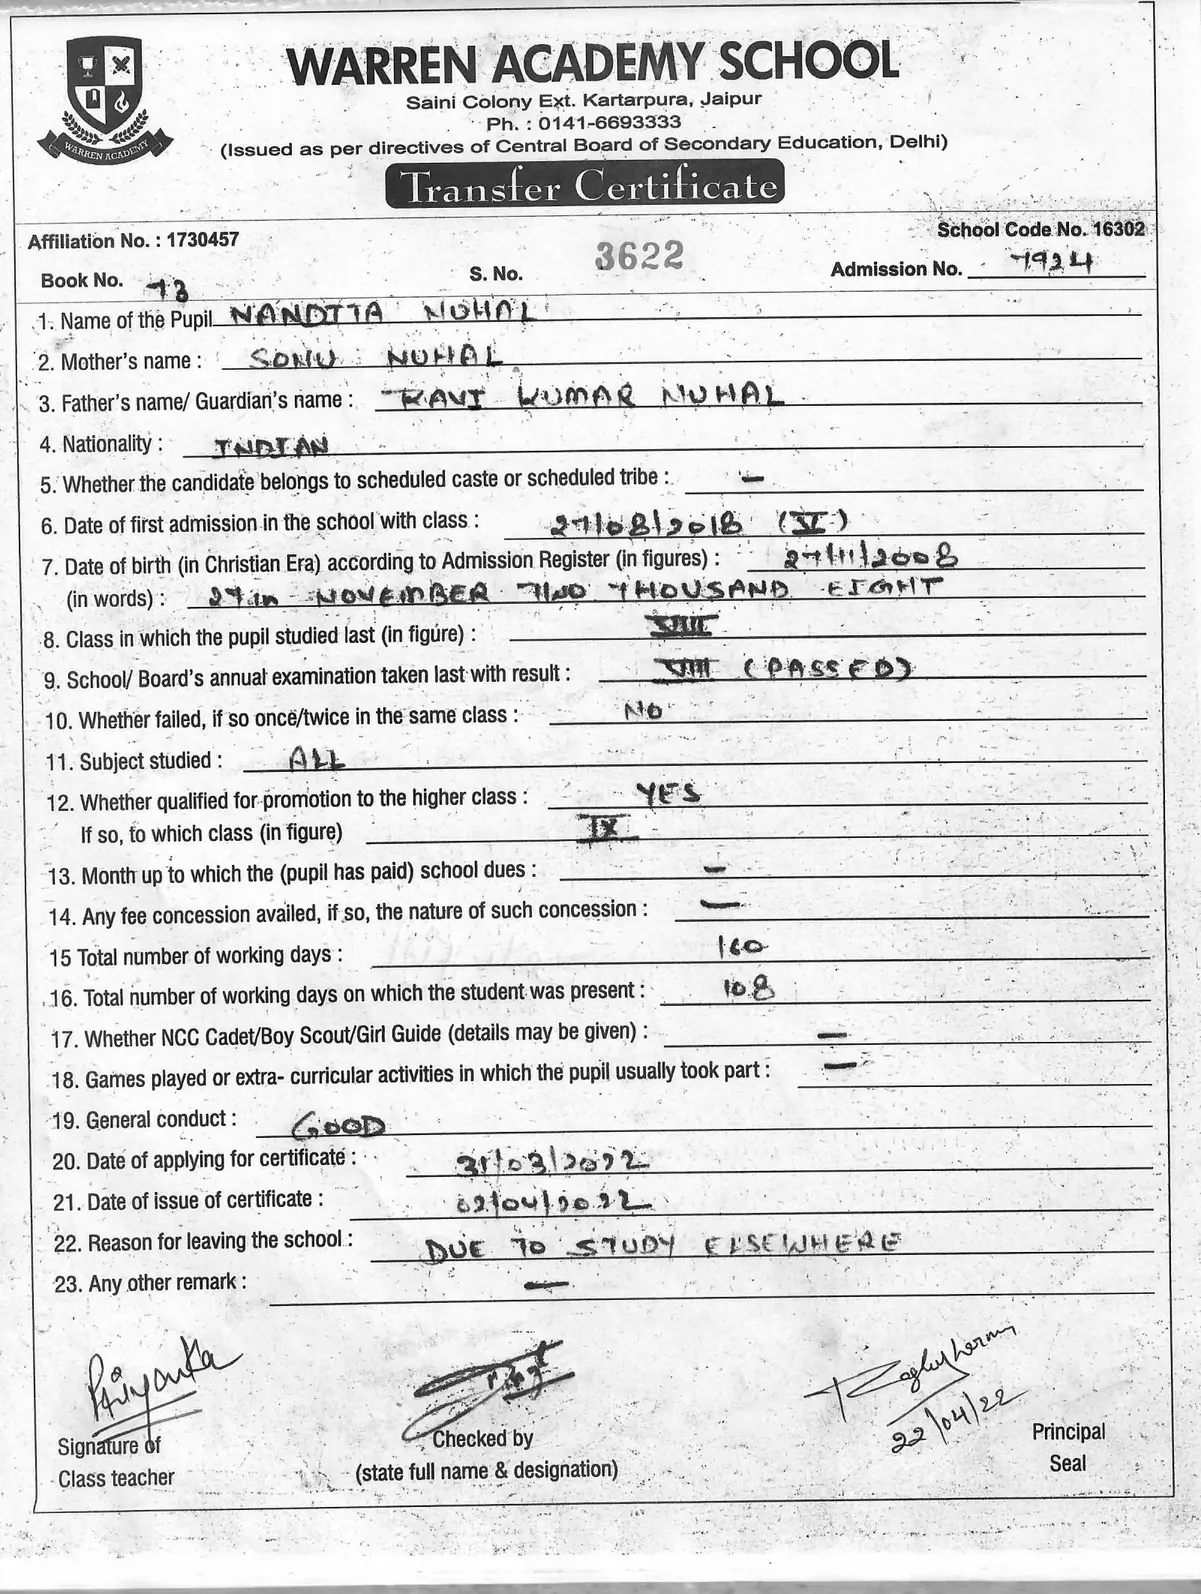 WARREN ACADEMY
WARREN ACADEMY SCHOOL
Saini Colony Ext. Kartarpura, Jaipur
Ph. : 0141-6693333
(Issued as per directives of Central Board of Secondary Education, Delhi)
Transfer Certificate
Affiliation No. : 1730457 School Code No. 16302
Book No. 73 S. No. 3622 Admission No. 7924
1. Name of the Pupil NANDITA NUHAL
2. Mother's name : SONU NUHAL
3. Father's name/ Guardian's name : RAVI KUMAR NUHAL
4. Nationality : INDIAN
5. Whether the candidate belongs to scheduled caste or scheduled tribe : –
6. Date of first admission in the school with class : 27/08/2018 (V)
7. Date of birth (in Christian Era) according to Admission Register (in figures) : 27/11/2008
(in words) : 27th NOVEMBER TWO THOUSAND EIGHT
8. Class in which the pupil studied last (in figure) : VIII
9. School/ Board's annual examination taken last with result : VIII (PASSED)
10. Whether failed, if so once/twice in the same class : NO
11. Subject studied : ALL
12. Whether qualified for promotion to the higher class : YES
If so, to which class (in figure) IX
13. Month up to which the (pupil has paid) school dues : –
14. Any fee concession availed, if so, the nature of such concession : –
15 Total number of working days : 160
16. Total number of working days on which the student was present : 108
17. Whether NCC Cadet/Boy Scout/Girl Guide (details may be given) : –
18. Games played or extra- curricular activities in which the pupil usually took part : –
19. General conduct : GOOD
20. Date of applying for certificate : 31/03/2022
21. Date of issue of certificate : 02/04/2022
22. Reason for leaving the school : DUE TO STUDY ELSEWHERE
23. Any other remark : –
Priyanka
22/04/22
Signature of Checked by Principal
Class teacher (state full name & designation) Seal